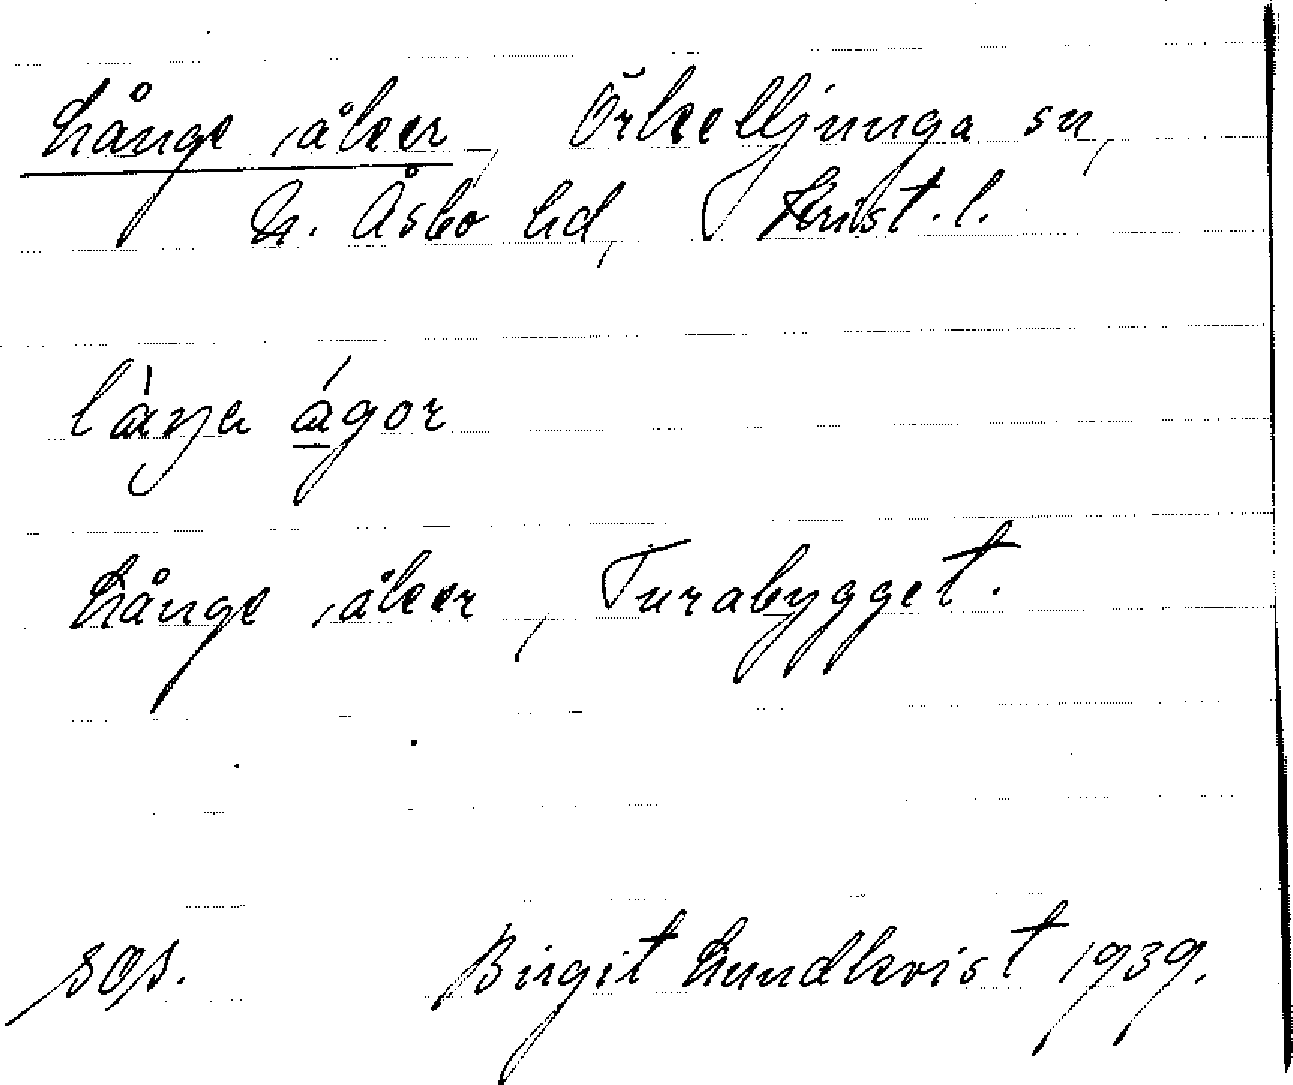 Långe åker, Örkelljunga sn,
N. Åsbo hd, Krist. l.
låŋa ågor
Långe åker, Turabygget.
sas. Birgit Lundkvist 1939.